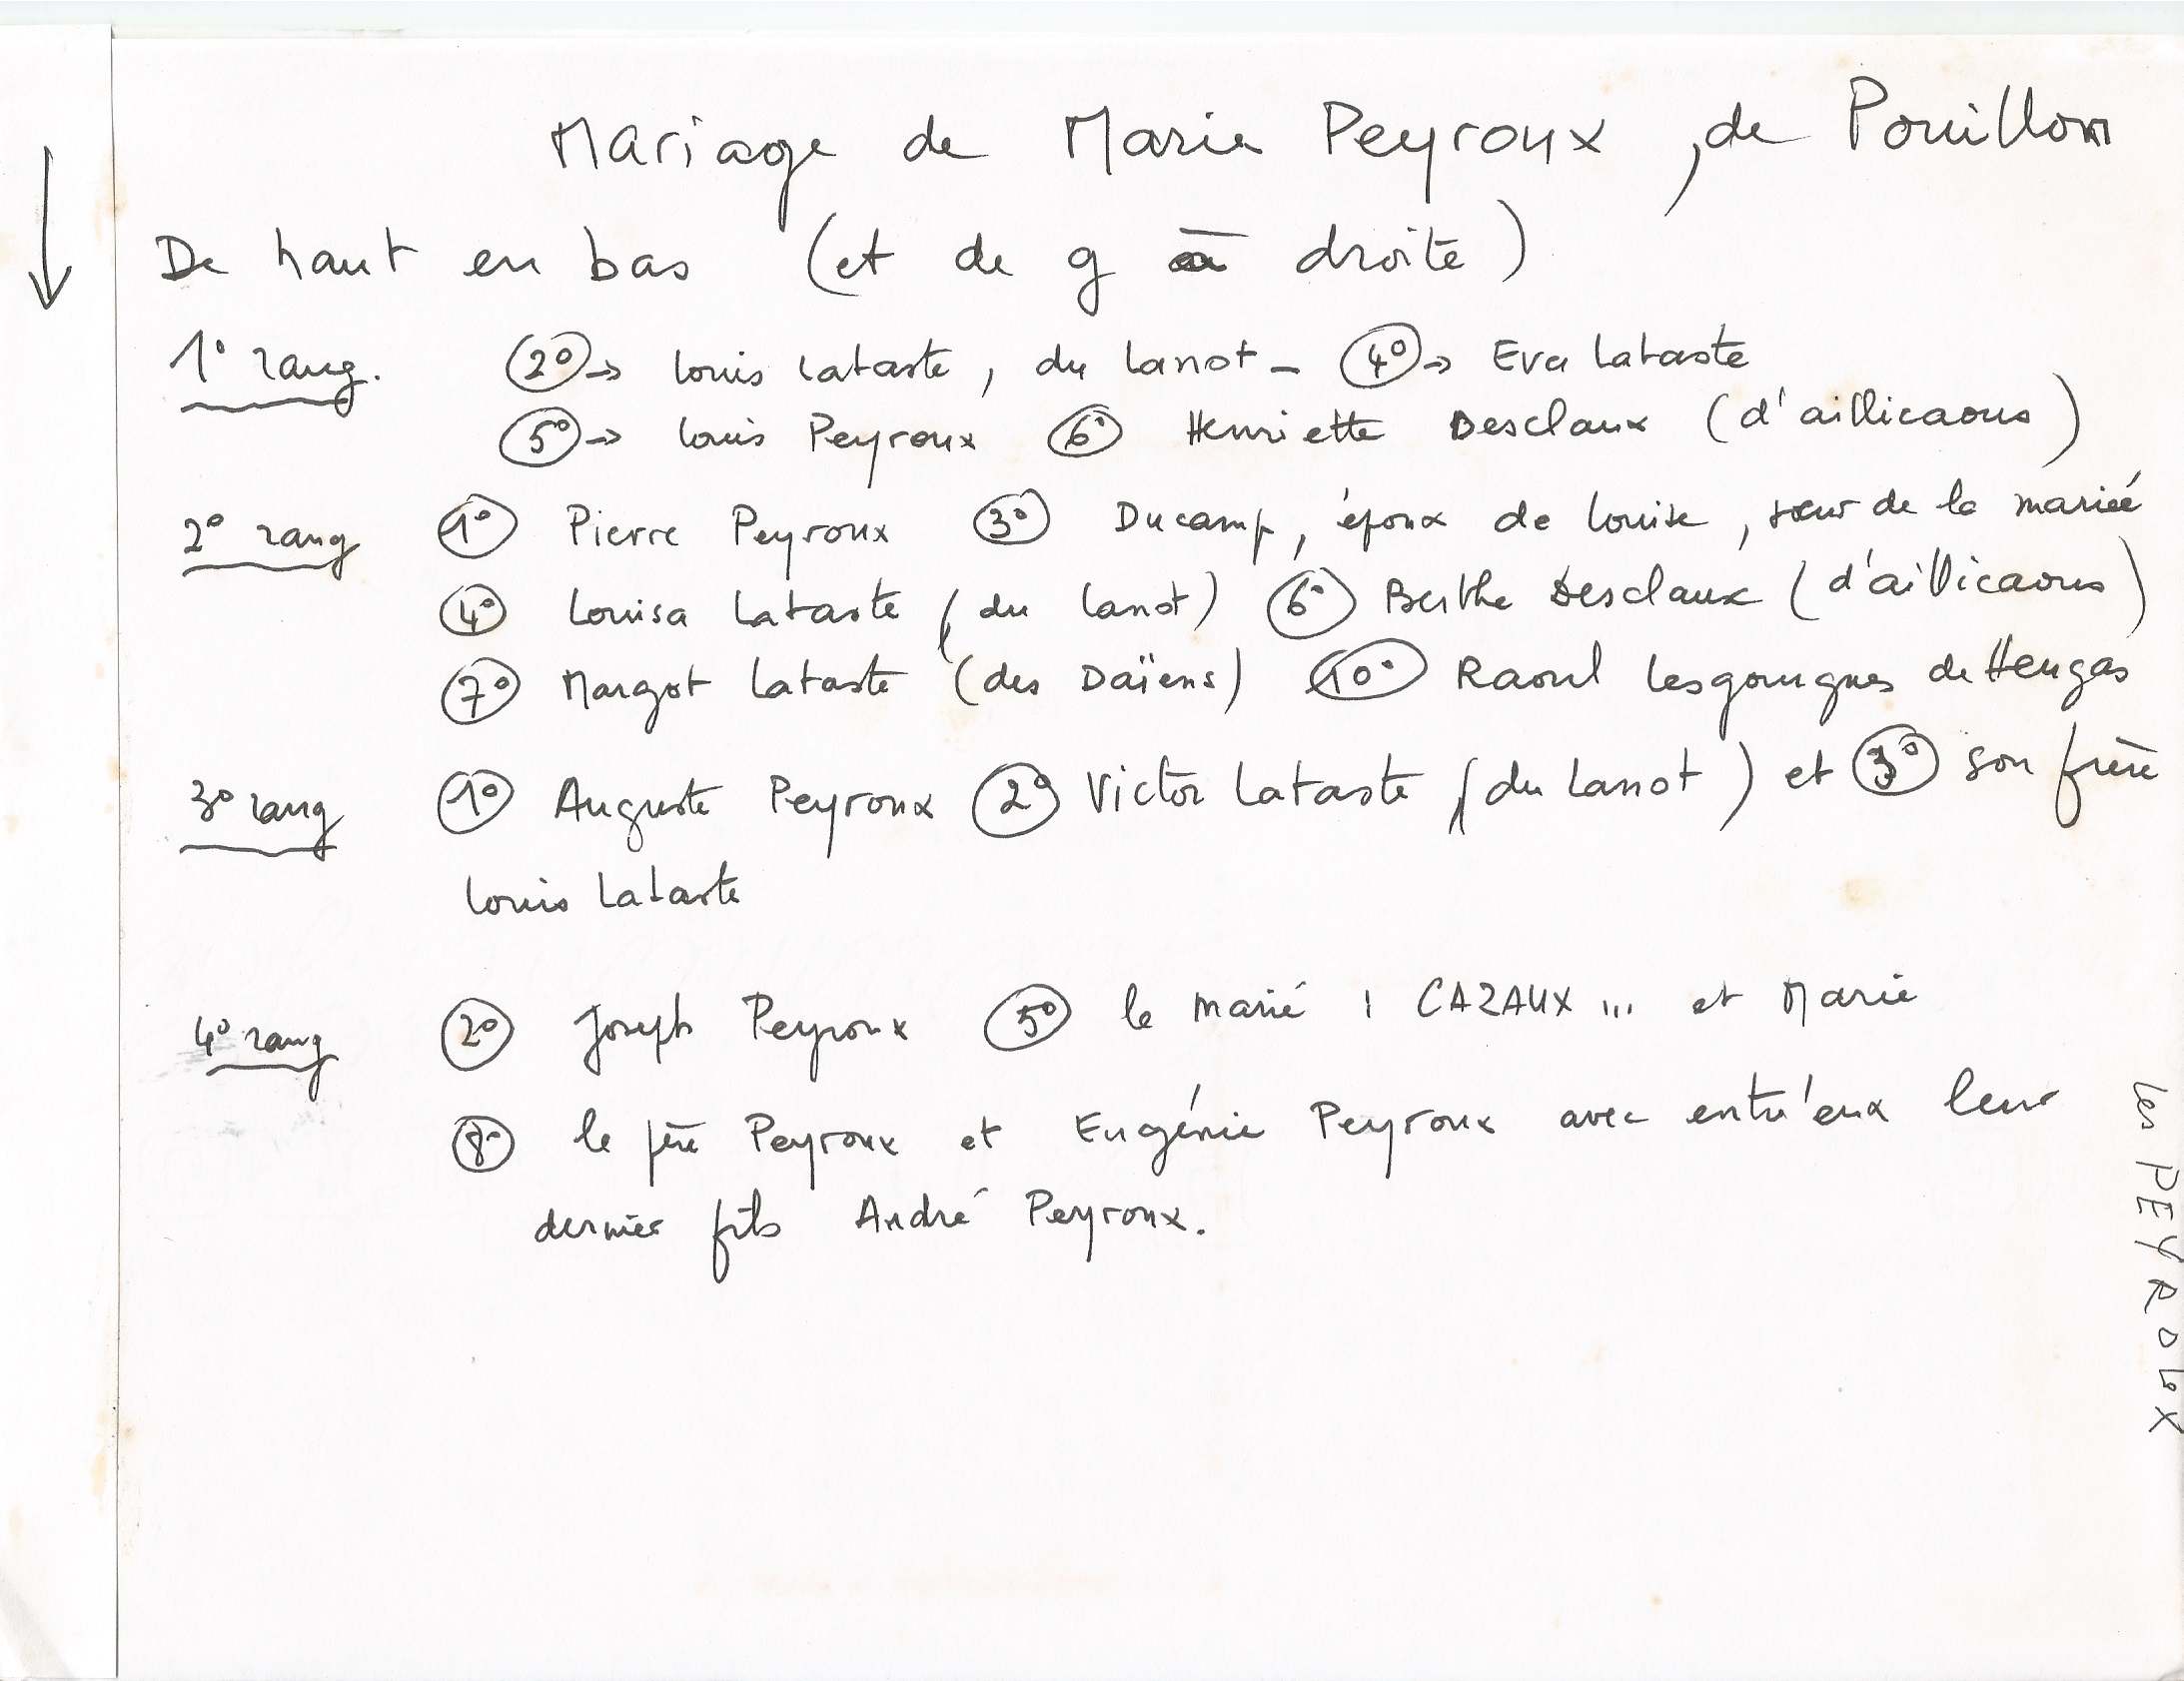 Mariage de Marie Peyroux, de Pouillon
De haut en bas (et de g à droite)
1° rang. 2° → Louis Lataste, du Lanot - 4° → Eva Lataste
5° → Louis Peyroux 6° Henriette Desclaux (d'aillicaous)
2° rang 1° Pierre Peyroux 3° Ducamp, époux de Louise, sœur de la mariée
4° Louisa Lataste (du Lanot) 6° Berthe Desclaux (d'aillicaous)
7° Margot Lataste (des Daïens) 10° Raoul Lesgourgues de Heugas
3° rang 1° Auguste Peyroux 2° Victor Lataste (du Lanot) et 3° son frère
Louis Lataste
4° rang 2° Joseph Peyroux 5° le marié : CAZAUX ... et Marie
8° le père Peyroux et Eugénie Peyroux avec entr'eux leur
dernier fils André Peyroux.
Les PEYROUX